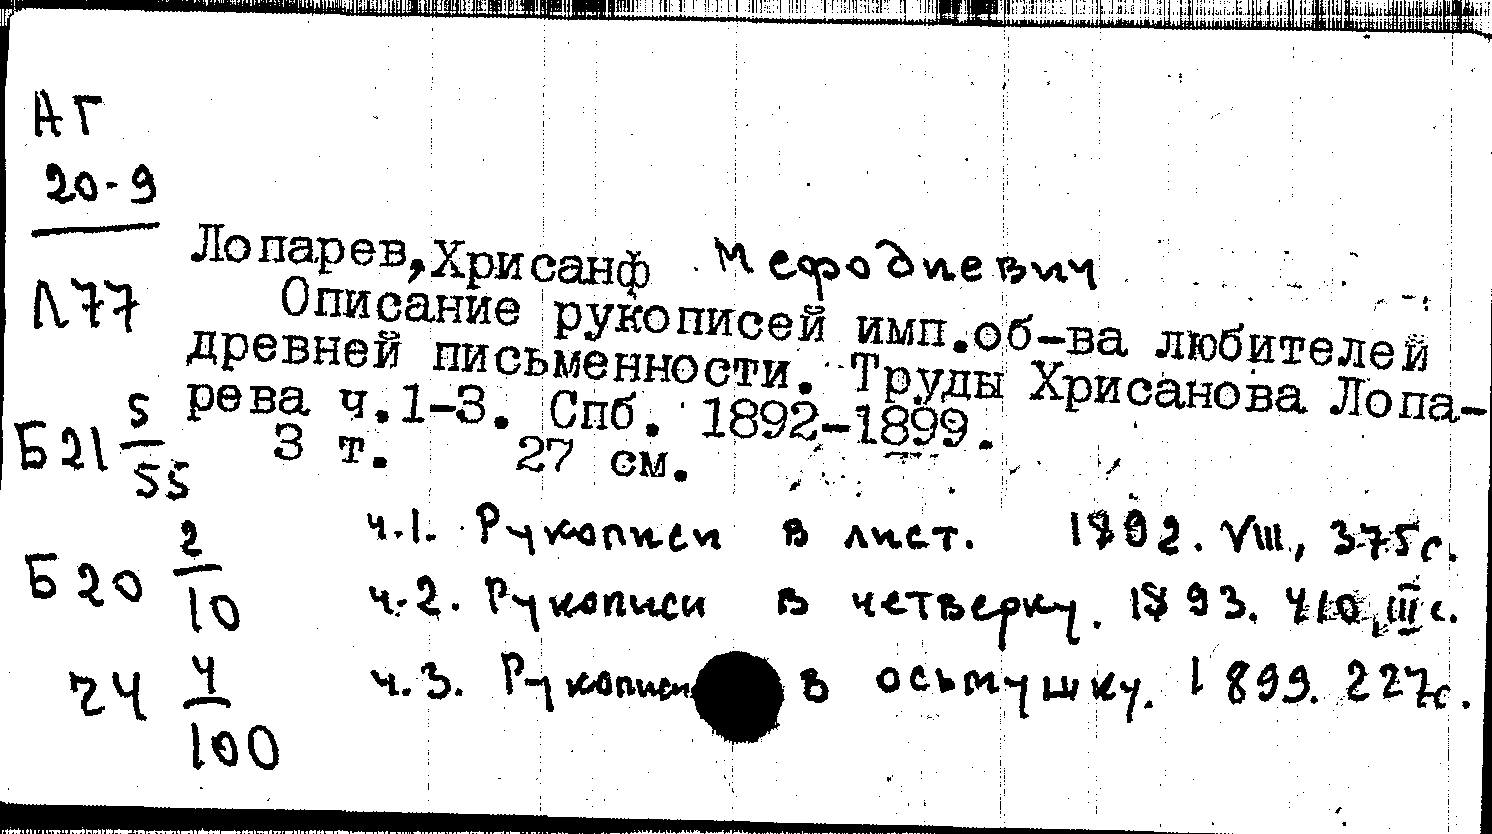 АГ
20-9
Л77
Лопарев, Хрисанф Мефодиевич
Описание рукописей имп.об-ва любителей
древней письменности. Труды Хрисанова Лопа-
рева ч.1-3. Спб. 1892-1899.
3 т. 27 см.
Б21 5/55
Б20 2/10
24 4/100
ч.1. Рукописи в лист. 1892. VIII, 375с.
ч.2. Рукописи в четверку. 1893. 410, III с.
ч.3. Рукописи в осьмушку. 1899. 227с.